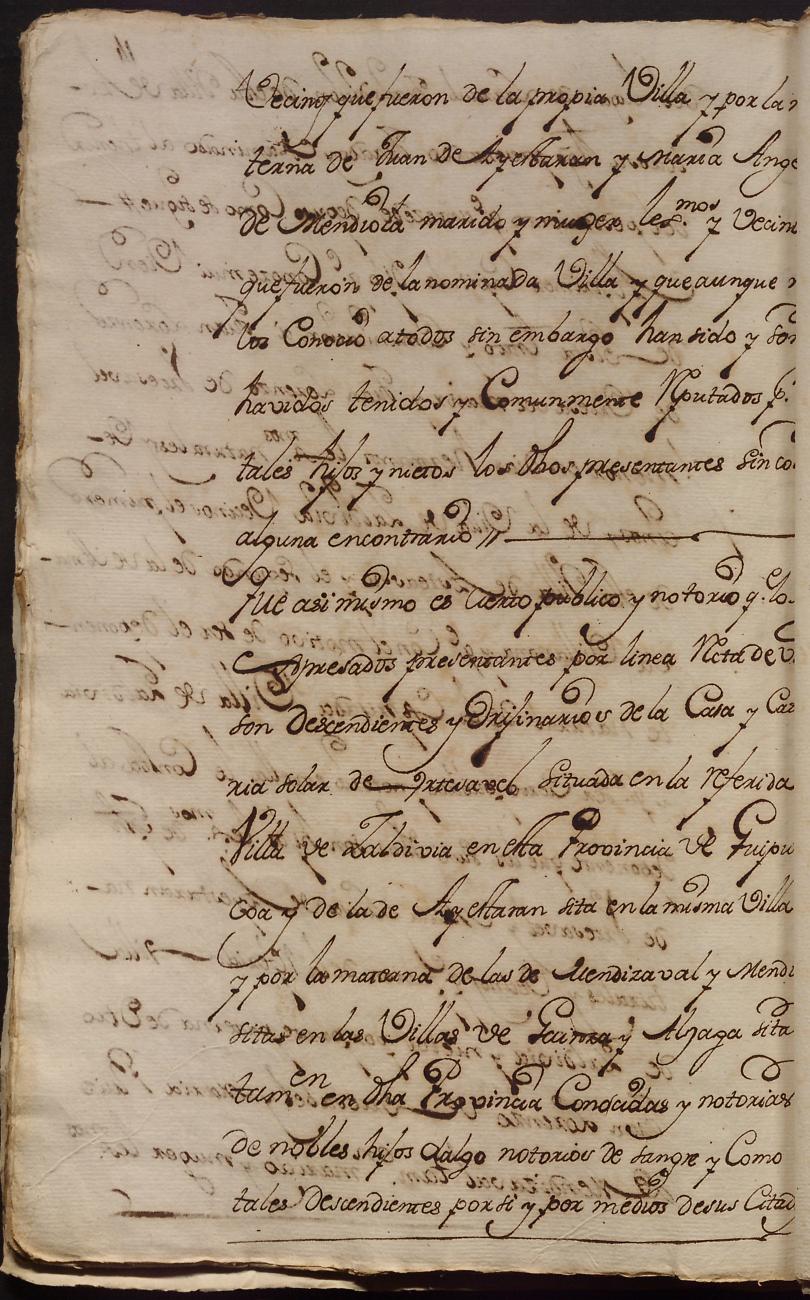 Vecinos que fueron de la propia Villa y por la
terna de Juan de Ayestaran y Maria Ange
de Mendiola marido y muger les.mos y Vecin
que fueron de la nominada Villa y que aunque n
los Conocio a todos sin embargo han sido y son
havidos tenidos y Comunmente Reputados p.
tales hijos y nietos los dhos presentantes sin co
alguna encontrario //
Que asi mismo es cierto publico y notorio q.e lo
Expresados presentantes por linea Recta de V
son Descendientes y Orijinarios de la Casa y Cas
ria solar de Ortesavel situada en la referida
Villa de Zaldivia en esta Provincia de Guipu
coa y de la de Ayestaran sita en la misma Villa
y por la materna de las de Mendizaval y Mendi
sitas en las Villas de Gainza y Alzaga sita
tamen en dha Provincia Conocidas y notorias
de nobles hijos dalgo notorios de sangre y Como
tales Descendientes por si y por medios de sus Citad